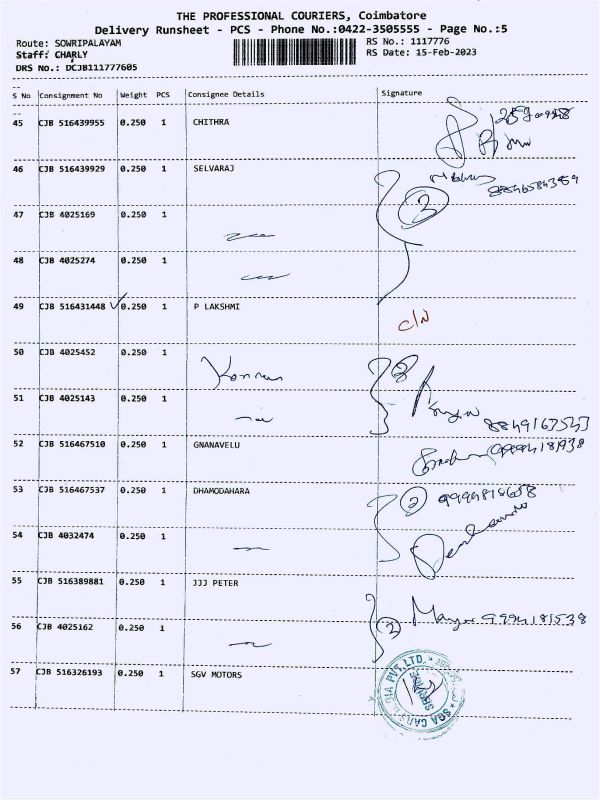 THE PROFESSIONAL COURIERS, Coimbatore
Delivery Runsheet - PCS - Phone No.:0422-3505555 - Page No.:5
Route: SOWRIPALAYAM RS No.: 1117776
Staff: CHARLY RS Date: 15-Feb-2023
DRS No.: DCJB111777605
S No Consignment No Weight PCS Consignee Details Signature
45 CJB 516439955 0.250 1 CHITHRA
46 CJB 516439929 0.250 1 SELVARAJ
3
47 CJB 4025169 0.250 1
48 CJB 4025274 0.250 1
49 CJB 516431448 0.250 1 P LAKSHMI
C/N
50 CJB 4025452 0.250 1
2
51 CJB 4025143 0.250 1
8849163543
52 CJB 516467510 0.250 1 GNANAVELU
53 CJB 516467537 0.250 1 DHAMODAHARA
2
54 CJB 4032474 0.250 1
55 CJB 516389881 0.250 1 JJJ PETER
9994181538
56 CJB 4025162 0.250 1
2
57 CJB 516326193 0.250 1 SGV MOTORS
SGA CARS INDIA PVT.LTD.